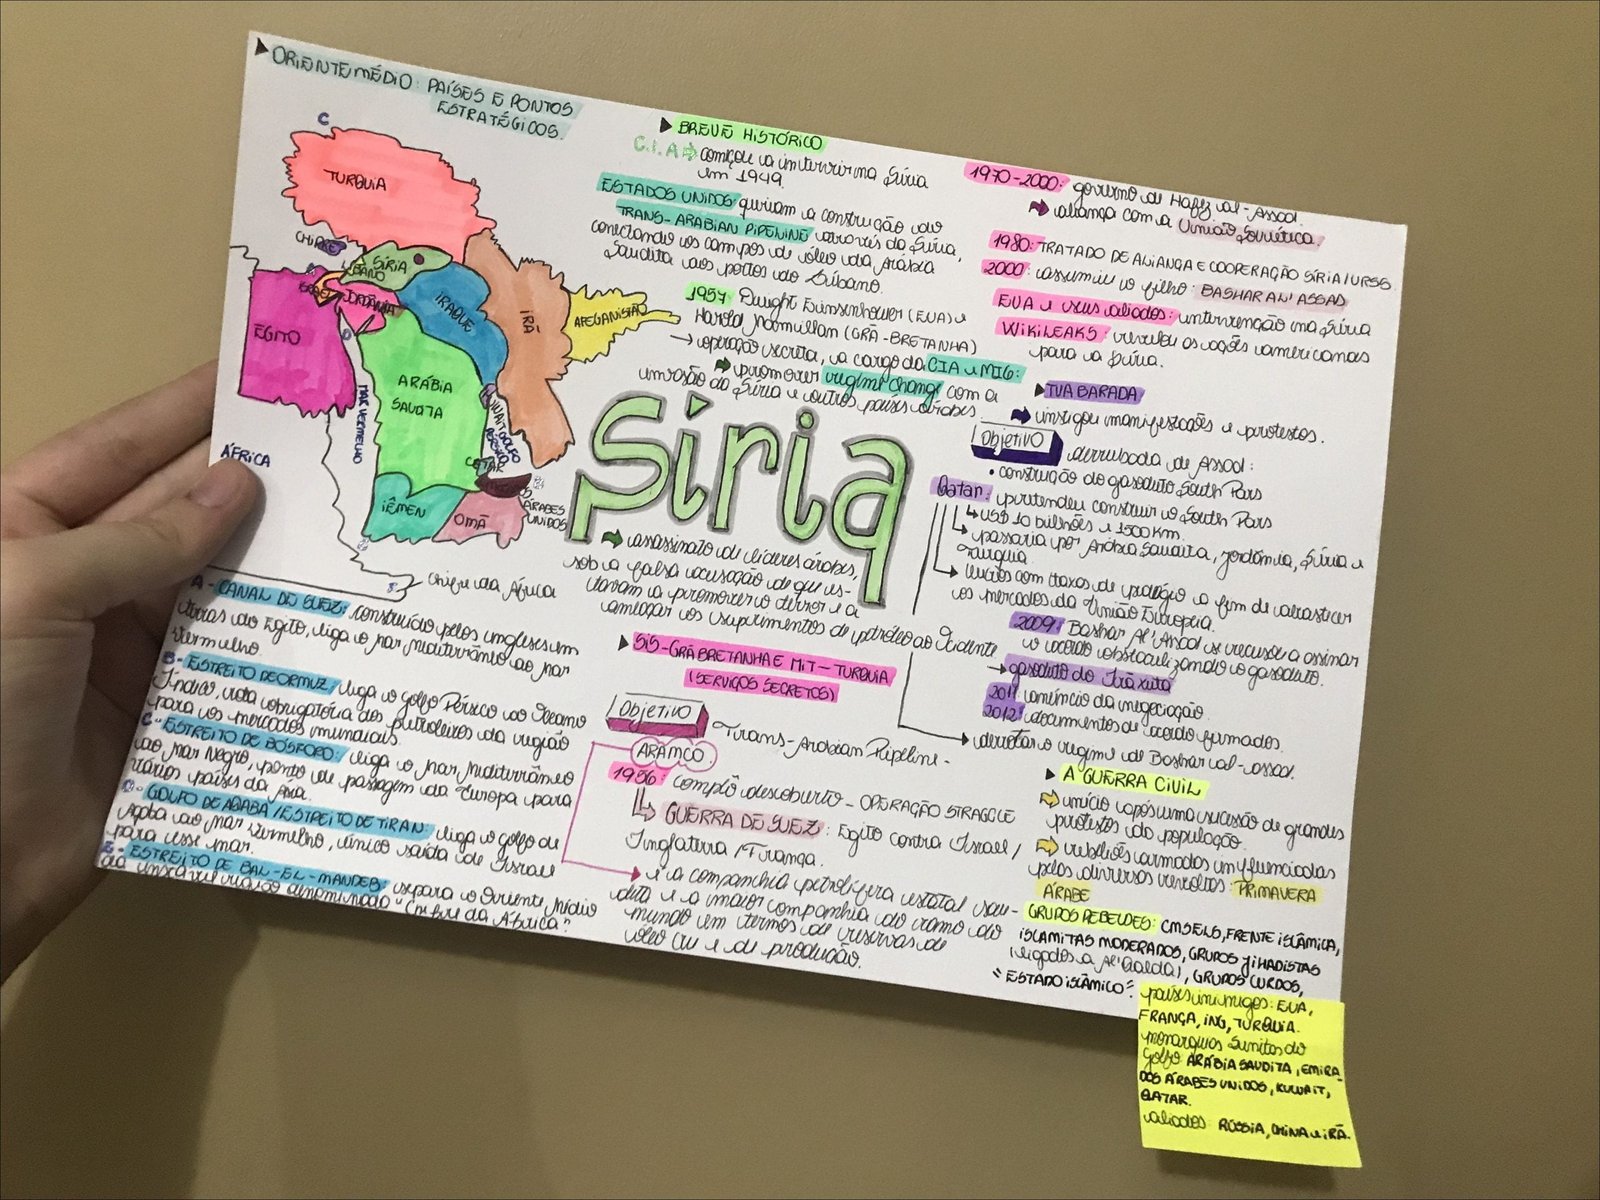 ORIENTE MÉDIO: PAÍSES E PONTOS
ESTRATÉGICOS.
C
TURQUIA
CHIPRE
SÍRIA
LÍBANO
ISRAEL
JORDÂNIA
IRAQUE
IRÃ
AFEGANISTÃO
EGITO
D
ARÁBIA
SAUDITA
MAR VERMELHO
KUWAIT
GOLFO
PÉRSICO
CATAR
ÁRABES
UNIDOS
IÊMEN
OMÃ
ÁFRICA
Chifre da África
A - CANAL DE SUEZ: construído pelos ingleses em
terras do Egito, liga o mar mediterrâneo ao mar
vermelho
B - ESTREITO DE ORMUZ: liga o golfo Pérsico ao Oceano
Índico, rota obrigatória dos petroleiros da região
para os mercados mundiais.
C - ESTREITO DE BÓSFORO: liga o mar mediterrâneo
ao mar Negro, ponto de passagem da Europa para
vários países da Ásia.
D - GOLFO DE AQABA/ESTREITO DE TIRAN: liga o golfo de
Aqaba ao mar vermelho, única saída de Israel
para esse mar.
E - ESTREITO DE BAL-EL-MANDEB: separa o Oriente Médio
da região denominada "Chifre da África"
BREVE HISTÓRICO
C.I.A começou a intervir na Síria
em 1949.
ESTADOS UNIDOS queriam a construção do
TRANS-ARABIAN PIPELINE através da Síria,
conectando os campos de óleo da Arábia
Saudita aos portos do Líbano.
1957: Dwight Eisenhower (EUA) e
Harold Macmillan (GRÃ-BRETANHA)
operação secreta, a cargo da CIA e MI6:
promover regime change com a
invasão da Síria e outros países árabes
Síria
assassinato de líderes árabes,
sob a falsa acusação de que es-
tavam a promover o terror e a
ameaçar os suprimentos de petróleo ao Ocidente
SIS-GRÃ BRETANHA E MIT-TURQUIA
(SERVIÇOS SECRETOS)
Objetivo
Trans-Arabian Pipeline-
ARAMCO
1956: complô descoberto - OPERAÇÃO STRAGGLE
GUERRA DE SUEZ: Egito contra Israel/
Inglaterra/França.
é a companhia petrolífera estatal sau-
dita e a maior companhia do ramo do
mundo em termos de reservas de
óleo cru e de produção.
1970-2000: governo de Hafez al-Assad.
aliança com a União Soviética.
1980: TRATADO DE ALIANÇA E COOPERAÇÃO SÍRIA/URSS
2000: assumiu o filho: BASHAR AL'ASSAD
EUA e seus aliados: intervenção na Síria
WIKILEAKS: revelou as ações americanas
para a Síria.
TVA BARADA
instigou manifestações e protestos.
Objetivo
derrubada de Assad:
• construção do gasoduto South Pars
Qatar: pretendeu construir o South Pars
US$ 10 bilhões e 1500 km.
passaria por Arábia Saudita, Jordânia, Síria e
Turquia
lucros com taxas de pedágio a fim de abastecer
os mercados da União Europeia.
2009: Bashar Al'Assad se recusou a assinar
o acordo obstaculizando o gasoduto.
gasoduto do Irã xiita
2011 anúncio da negociação.
2012: documentos de acordo firmados.
derrotar o regime de Bashar al-assad.
A GUERRA CIVIL
início após uma sucessão de grandes
protestos da população.
rebeliões armadas influenciadas
pelas diversas revoltas: PRIMAVERA
ÁRABE
GRUPOS REBELDES: CMSELS, FRENTE ISLÂMICA,
ISLAMITAS MODERADOS, GRUPOS JIHADISTAS
(ligados a Al'Qaeda), GRUPOS CURDOS,
"ESTADO ISLÂMICO".
países inimigos: EUA,
FRANÇA, ING, TURQUIA.
monarquias sunitas do
golfo: ARÁBIA SAUDITA, EMIRA-
DOS ÁRABES UNIDOS, KUWAIT,
QATAR.
aliados: RÚSSIA, CHINA e IRÃ.